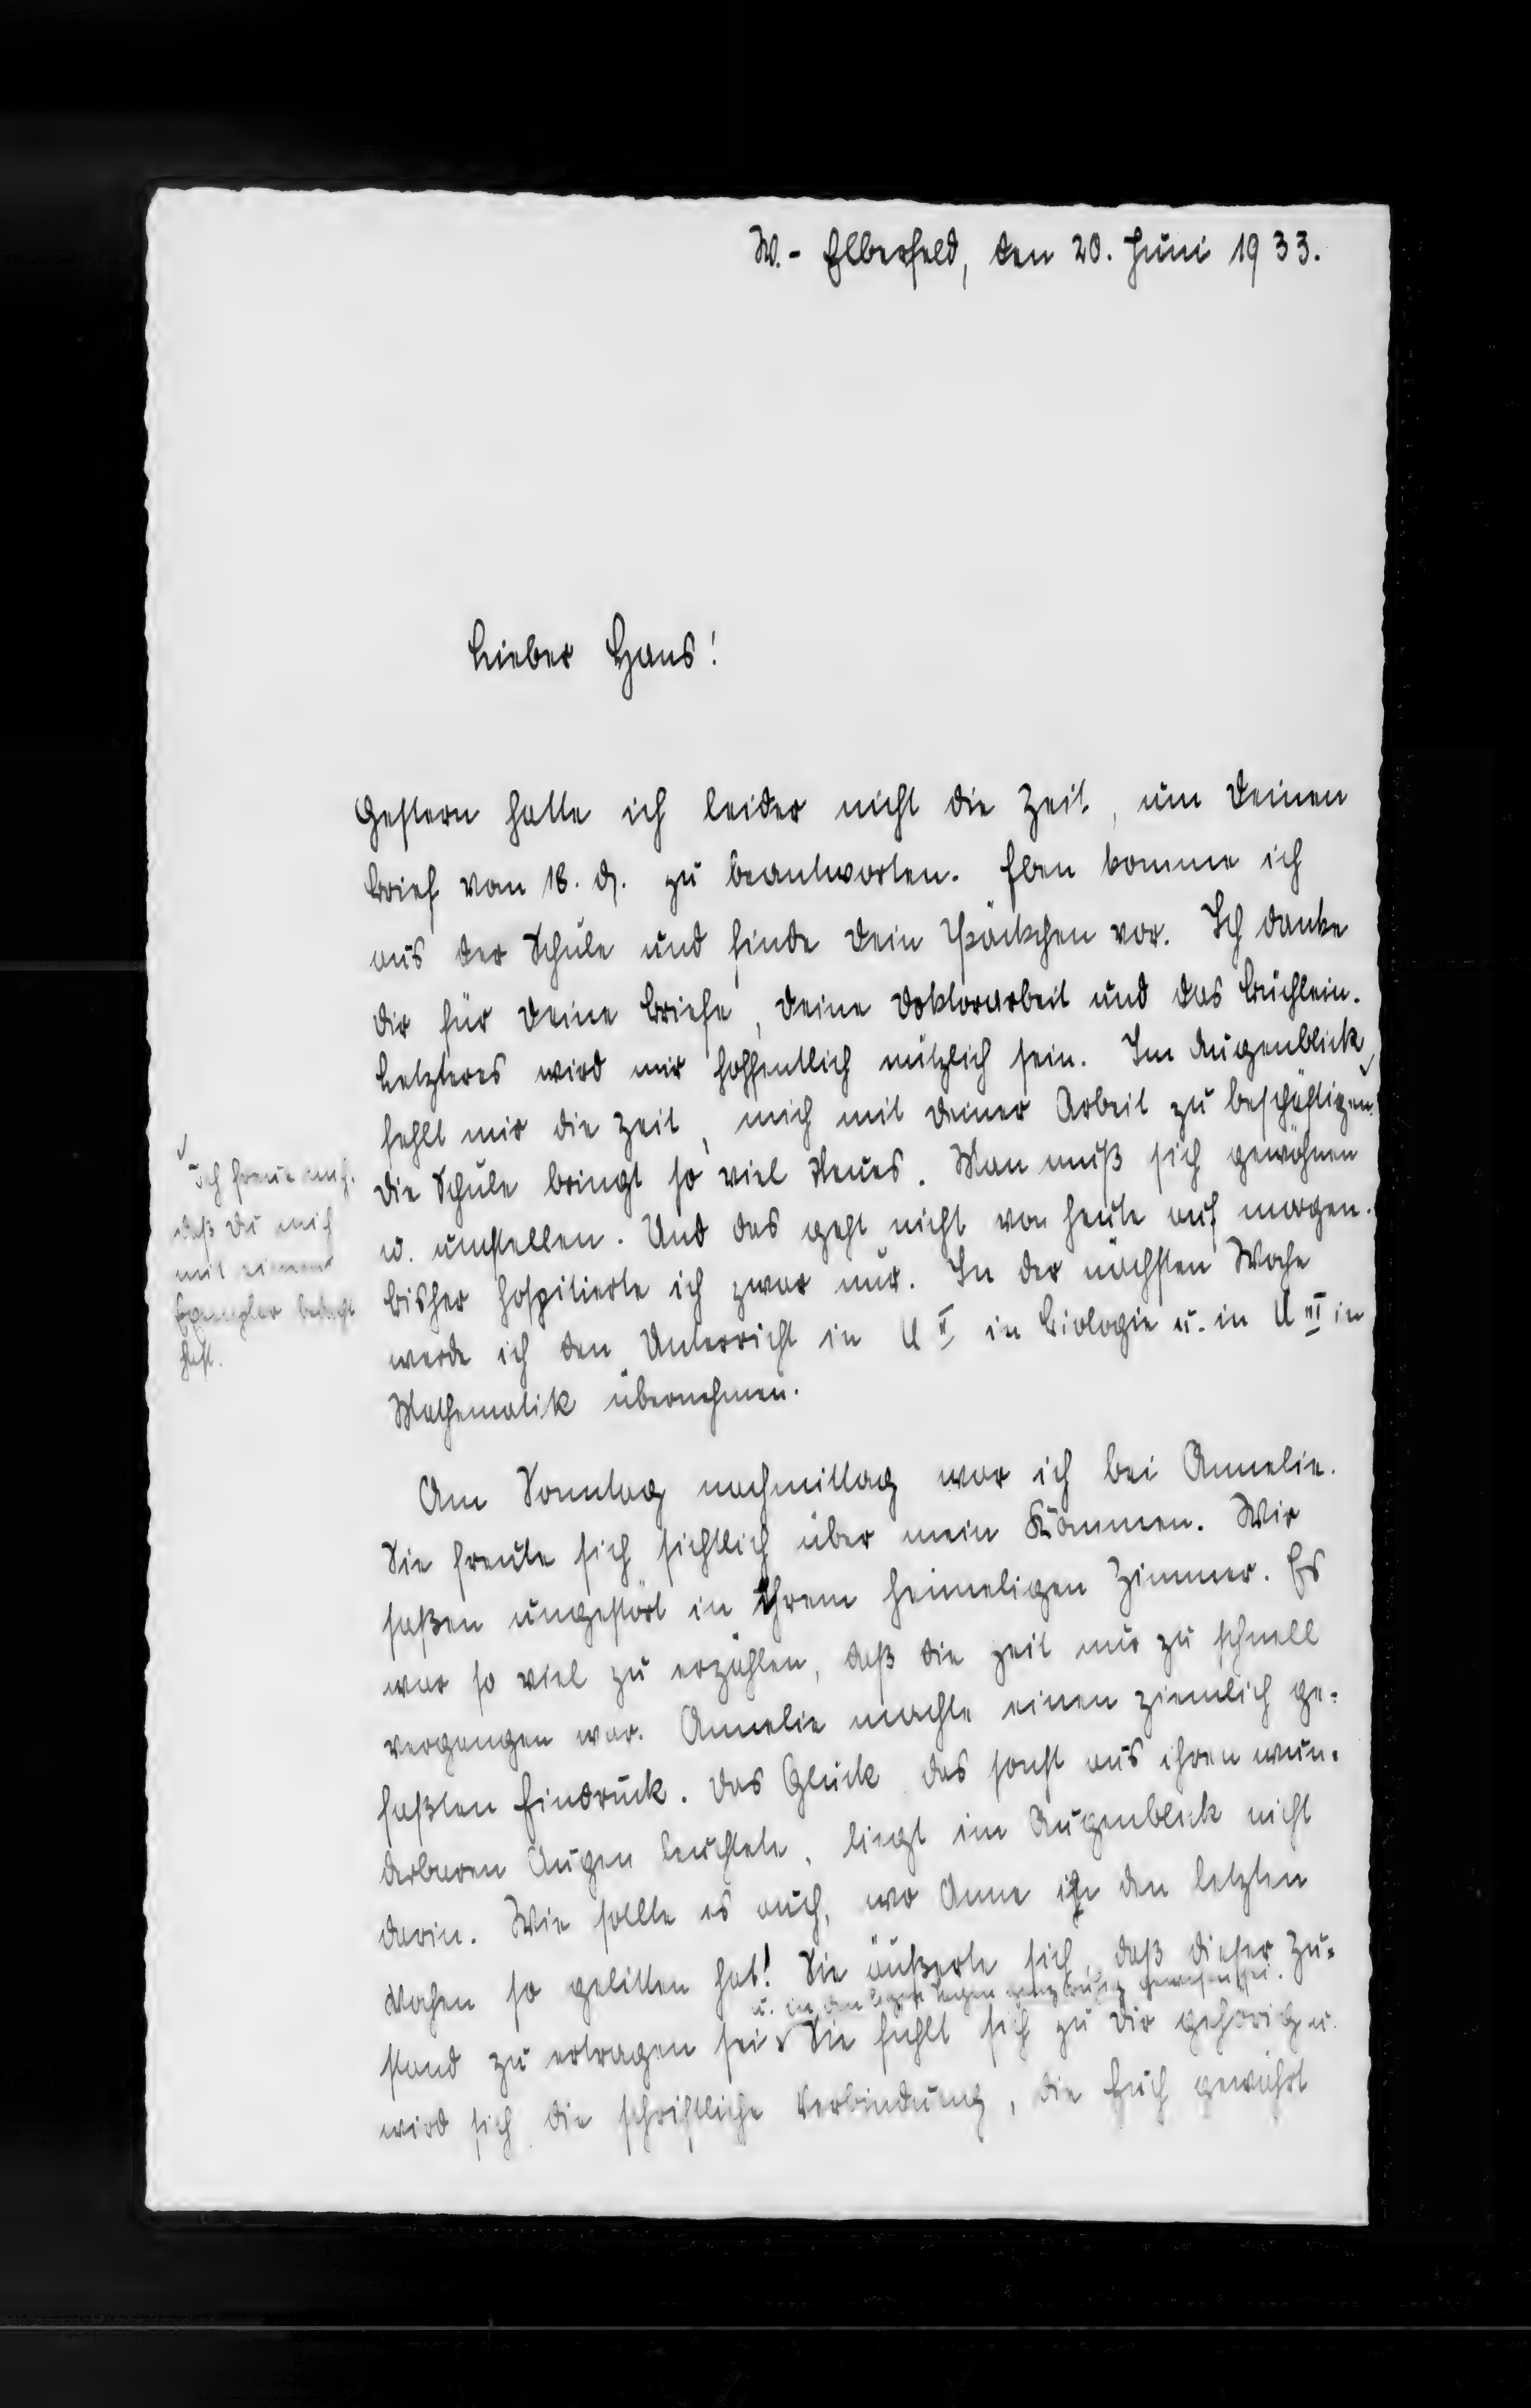 W.- Elberfeld, den 20. Juni 1933.
Lieber Hans!
Gestern hatte ich leider nicht die Zeit, um Deinen
Brief vom 18. ds. zu beantworten. Eben komme ich
aus der Schule und finde Dein Päckchen vor. Ich danke
Dir für Deine Briefe, Deine Doktorarbeit und das Büchlein.
Letzteres wird mir hoffentlich nützlich sein. Im Augenblick
fehlt mir die Zeit, mich mit Deiner Arbeit zu beschäftigen.
Die Schule bringt so viel Neues. Man muß sich gewöhnen
u. umstellen. Und das geht nicht von heute auf morgen.
Bisher hospitierte ich zwar nur. In der nächsten Woche
werde ich den Unterricht in U II in Biologie u. in U III in
Mathematik übernehmen.
Ich freue mich,
daß Du mich
mit einem
Exemplar bedacht
hast.
Am Sonntag nachmittag war ich bei Annelie.
Sie freute sich sichtlich über mein Kommen. Wir
saßen ungestört in ihrem heimeligen Zimmer. Es
war so viel zu erzählen, daß die Zeit nur zu schnell
vergangen war. Annelie machte einen ziemlich ge-
faßten Eindruck. Das Glück das sonst aus ihren wun-
derbaren Augen leuchtete, liegt im Augenblick nicht
darin. Wie sollte es auch, wo Anne in den letzten
Wochen so gelitten hat! Sie äußerte sich, daß dieser Zu-
u. in den letzten Tagen ganz ruhig gewesen sei.
stand zu ertragen sei. Sie fühlt sich zu Dir gehörig u.
wird sich die schriftliche Verbindung, die Euch gewährt